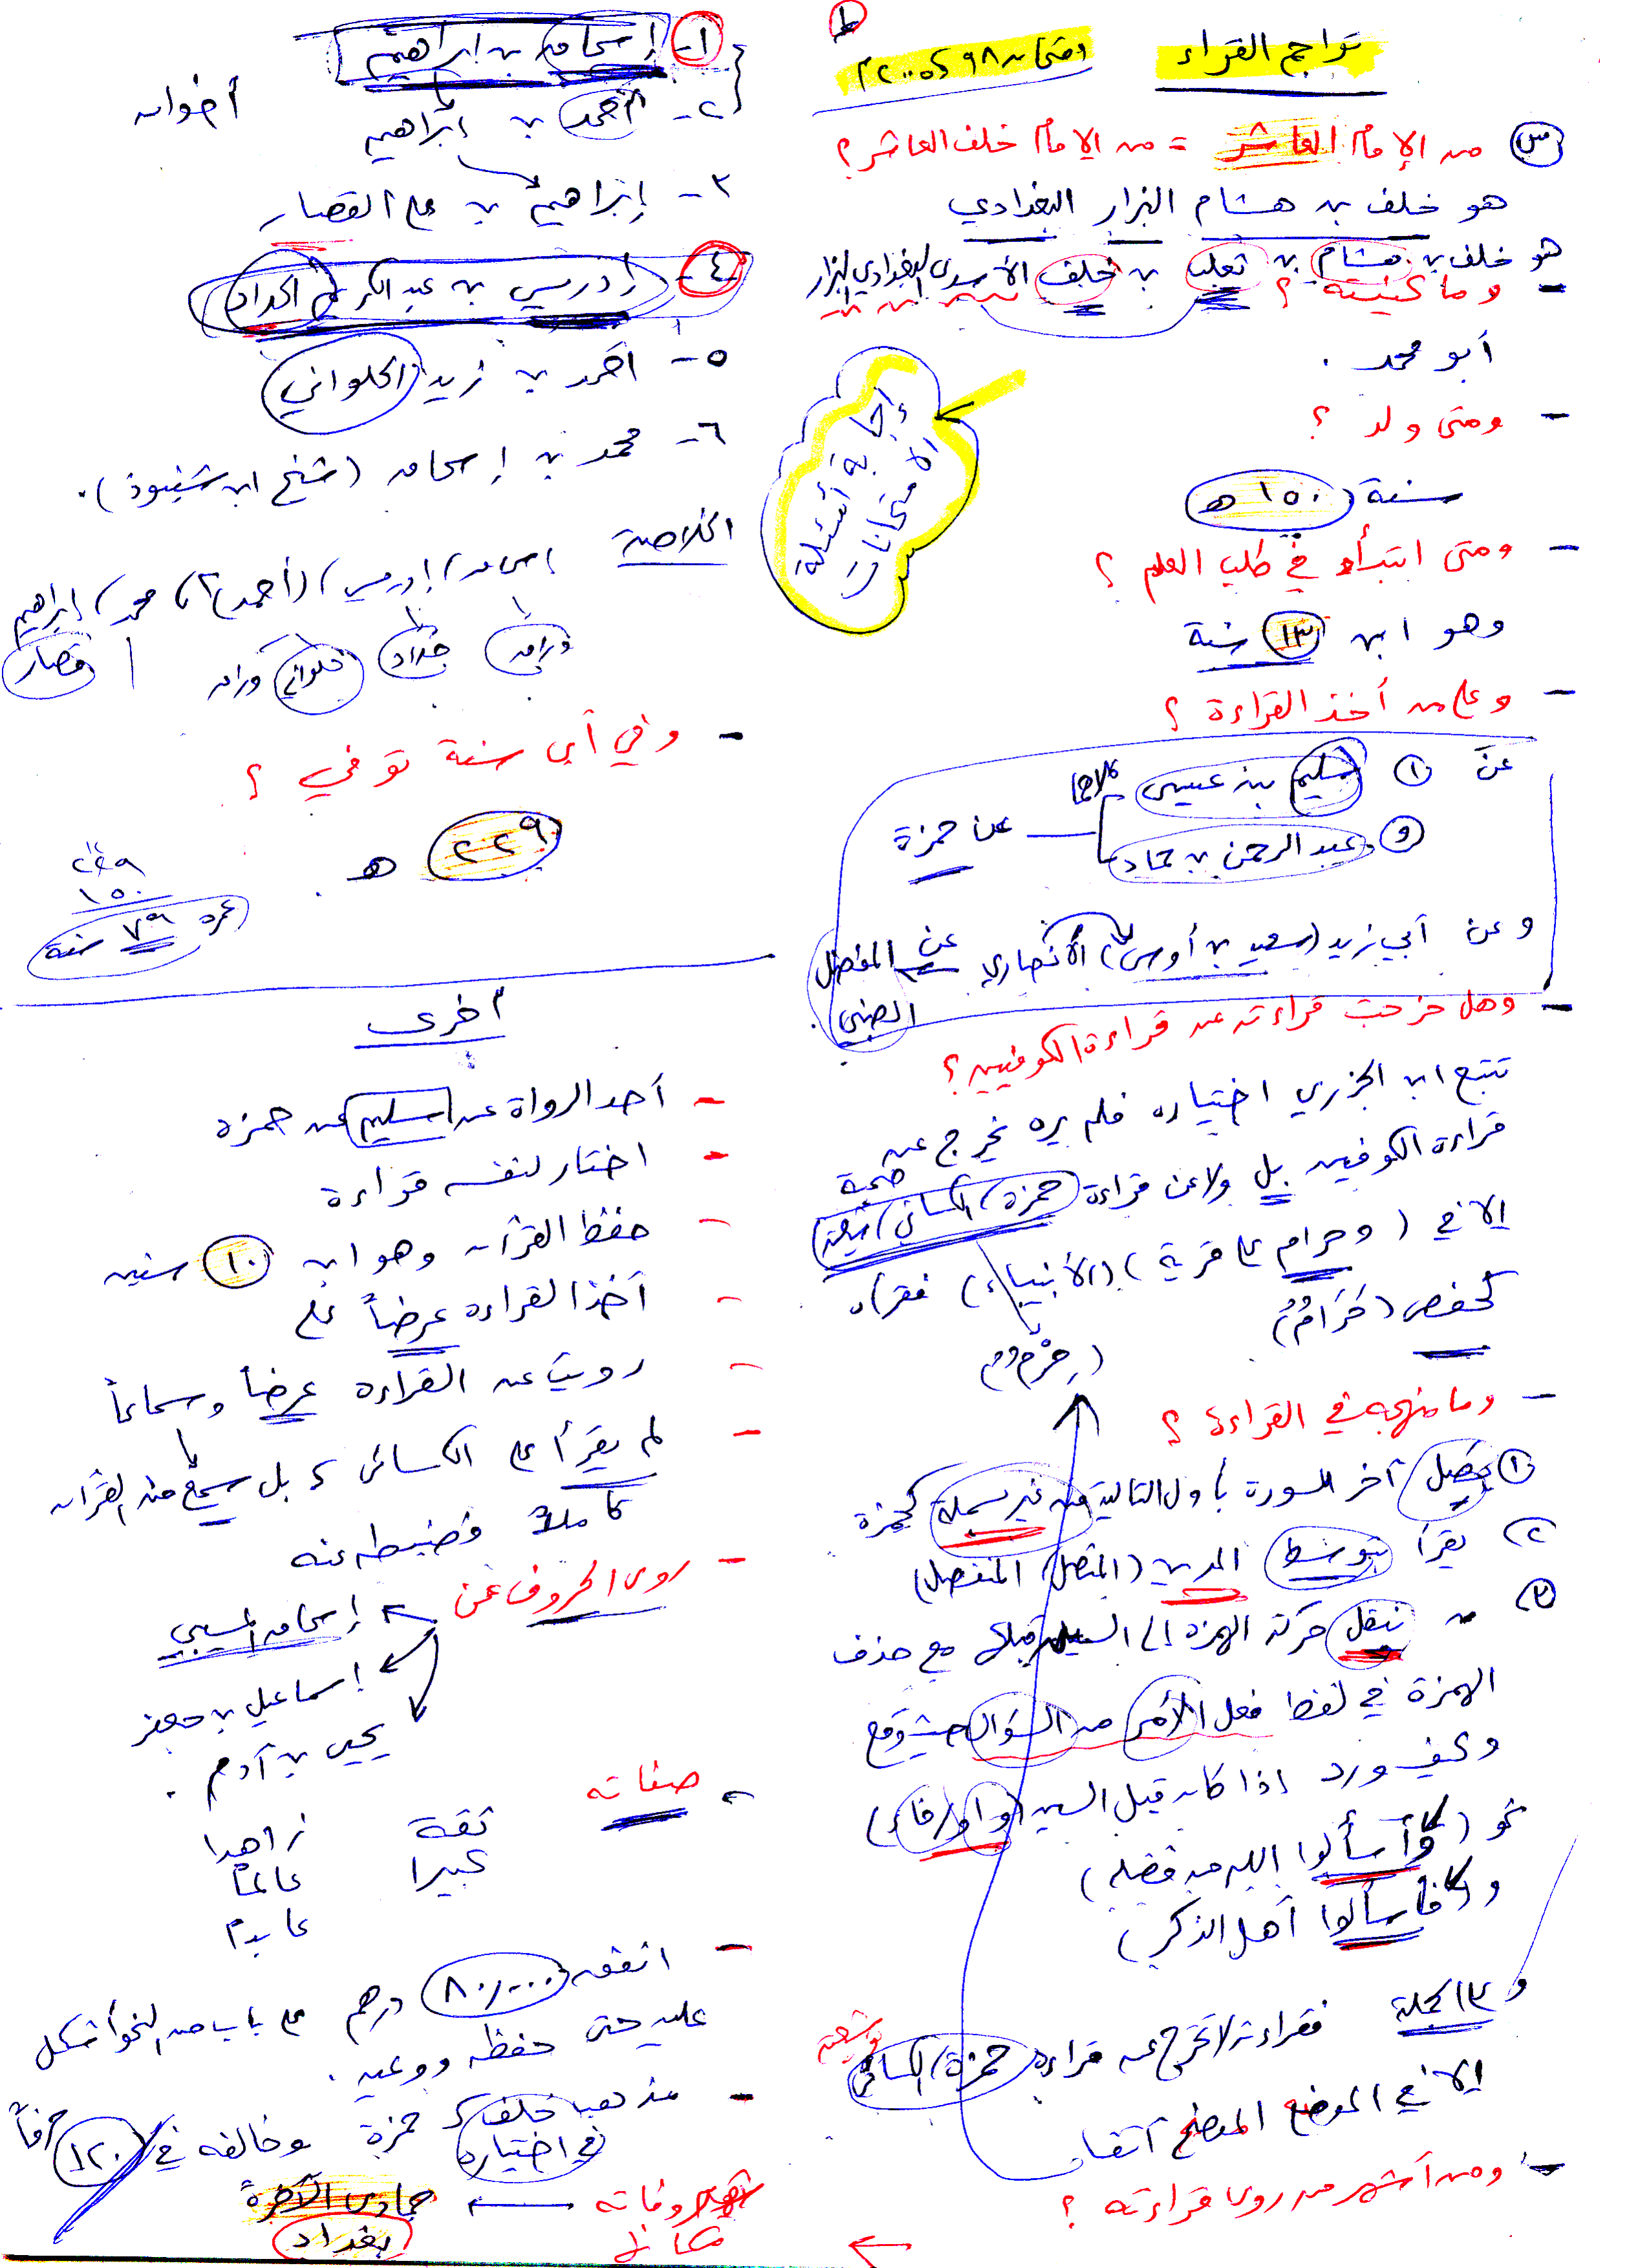 تراجم القراء
س من الإمام العاشر = من الإمام خلف العاشر؟
هو خلف بن هشام البزار البغدادي
هو خلف بن هشام بن ثعلب بن خلف الأسدي البغدادي البزار
- وما كنيته؟
أبو محمد.
- ومتى ولد؟
سنة ١٥٠ هـ
- ومتى ابتدأ في طلب العلم؟
وهو ابن ١٣ سنة
- وعلى من أخذ القراءة؟
عن ① سليم بن عيسى
② عبد الرحمن بن حماد
كلاهما عن حمزة
وعن أبي زيد (سعيد بن أوس) الأنصاري عن المفضل
الضبي.
- وهل خرجت قراءته عن قراءة الكوفيين؟
تتبع ابن الجزري اختياره فلم يره يخرج عن
قراءة الكوفيين بل ولا عن قراءة حمزة / الكسائي / شعبة
إلا في (وحرام على قرية) (الأنبياء) فقرأه
كحفص (حَرَامٌ)
(حِرْمٌ)
- وما منهجه في القراءة؟
① يصل آخر السورة بأول التالية من غير بسملة كحمزة
٢) يقرأ بتوسط المدين (المتصل، المنفصل)
٣) ينقل حركة الهمزة إلى السين قبلها مع حذف
الهمزة في لفظ فعل الأمر من السؤال حيث وقع
وكيف ورد إذا كان قبل السين (واو / فاء)
نحو (وأسألوا الله من فضله)
و (فأسألوا أهل الذكر)
و الجملة فقراءته لا تخرج عن قراءة حمزة / الكسائي
وشعبة
إلا في الموضع الموضح آنفا.
- ومن أشهر من روى قراءته؟
إجابة أسئلة
الامتحانات
١- إسحاق بن إبراهيم
٢- أحمد بن إبراهيم
أخوان
٣- إبراهيم بن علي القصار
٤- إدريس بن عبد الكريم الحداد
٥- أحمد بن زيد الحلواني
٦- محمد بن إسحاق (شيخ ابن شنبوذ).
الخلاصة
إسحاق / إدريس / (أحمد) ٢ / محمد / إبراهيم
وراق حداد حلواني وراق قصار
- وفي أي سنة توفي؟
٢٢٩ هـ.
٢٢٩
١٥٠
عمره ٧٩ سنة
أخرى
- أحد الرواة عن سليم عن حمزة
- اختار لنفسه قراءة
- حفظ القرآن وهو ابن ١٠ سنين
- أخذ القراءة عرضاً على
- رويت عنه القراءة عرضاً وسماعاً
- لم يقرأ على الكسائي بل سمع منه القرآن
كاملاً فضبطه عنه
- روى الحروف عن إسحاق المسيبي
إسماعيل بن جعفر
يحيى بن آدم.
- صفاته
ثقة زاهدا
كبيرا عالماً
عابدا
- أنفق ٨٠٠٠٠ درهم على باب من النحو أشكل
عليه حتى حفظه ووعيه.
- مذهب خلف كـ حمزة وخالفه في ١٢٠ حرفاً
في اختياره
شهر وفاته ← جمادى الآخرة
مكانها بغداد